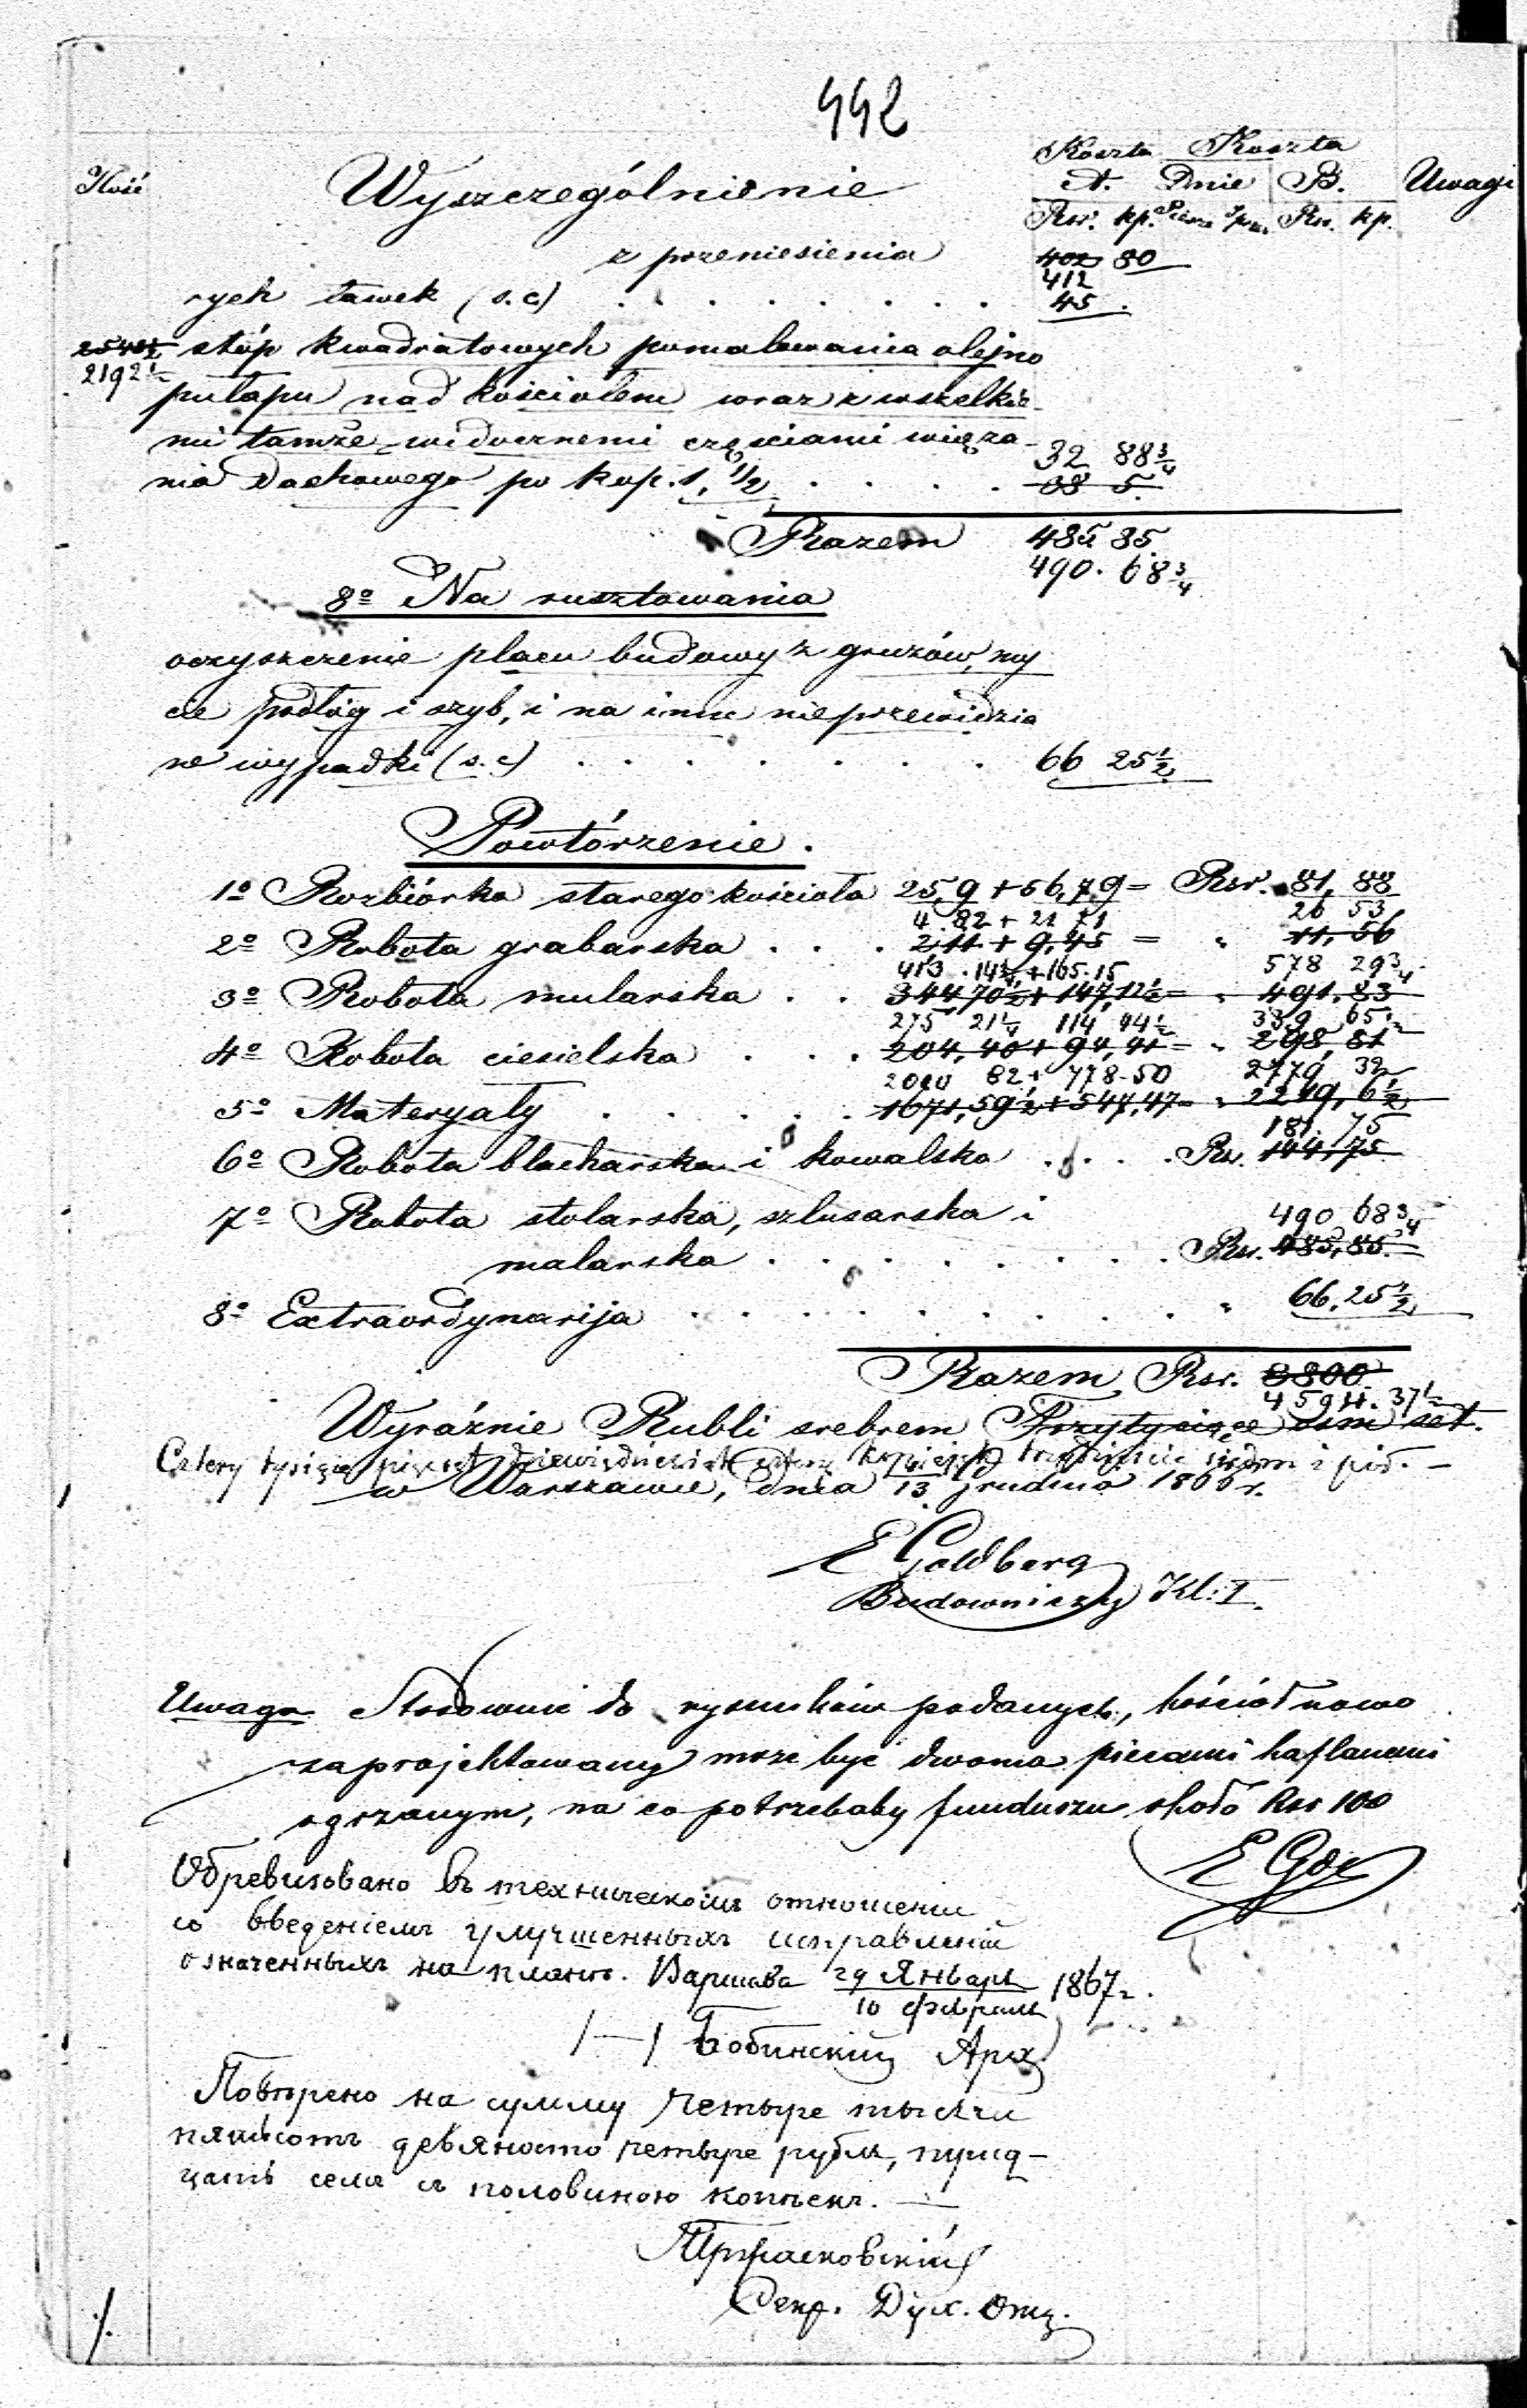 442
Ilość Wyszczególnienie Koszta Koszta Uwagi
A. Dnie B.
Rsr. kp. Piesze Rsr. kp.
z przeniesienia 402 80
412
rych ławek (s.c) . . . . . . . 45 .
2540½ stóp kwadratowych pomalowania olejno
2192½
pułapu nad kościołem wraz z wszelkie-
mi tamże widocznemi częściami wiąza-
32 88¾
nia Dachowego po kop. 1,½ . . . . 38 5
Razem 485 85
490. 68¾
8º Na rusztowania
oczyszczenie placu budowy z gruzów, my
cie podłóg i szyb, i na inne nieprzewidzia
ne wypadki (s.c) . . . . . . . 66 25½
Powtórzenie.
1º Rozbiórka starego kościoła 25,9 + 56,79 = Rsr. 81, 88
4.82 + 21 71 26 53
2º Robota grabarska . . . 2,11 + 9,45 = " 11,56
413.14¾ + 165.15 578 29¾
3º Robota mularska . . 344,70½ + 147,12½ = " 491.83
275 21¼ 114 44½ 339 65½
4º Robota ciesielska . . . 204,40 + 94,41 = " 298,81
2000 82 + 778-50 2779 32
5º Materyały . . . . . 1671,59½ + 547,47 = " 2219,6½
181. 75
6º Robota blacharska i kowalska . . . . Rsr. 144,75
7º Robota stolarska, szlusarska i 490 68¾
malarska . . . . . . . . Rsr. 485,85.
8º Extraordynarija . . . . . . . . . " 66,25½
Razem Rsr. 3800
4594. 37½
Wyraźnie Rubli srebrem Trzytysiące osm set.
Cztery tysiące pięćset dziewięćdziesiąt cztery kopiejek trzydzieście siedm i pół. –
w Warszawie, dnia 13 Grudnia 1866 r.
E Goldberg
Budowniczy Kl: I.
Uwaga Stosownie do rysunków podanych, kościoł nowo
zaprojektowany może być dwoma piecami kaflanemi
ogrzanym, na co potrzebaby funduszu około Rsr 100
E Gol
Обревизовано въ техническомъ отношеніи
со введеніемъ улучшенныхъ исправленій
означенныхъ на планѣ. Варшава 29 Январь 1867 г.
10 Февраль
/—/ Бобинскій Арх.
Повѣрено на сумму четыре тысячи
пятьсотъ девяносто четыре рубля, трид-
цать семь съ половиною копѣекъ. —
Секр. Дух. Отд.
./.